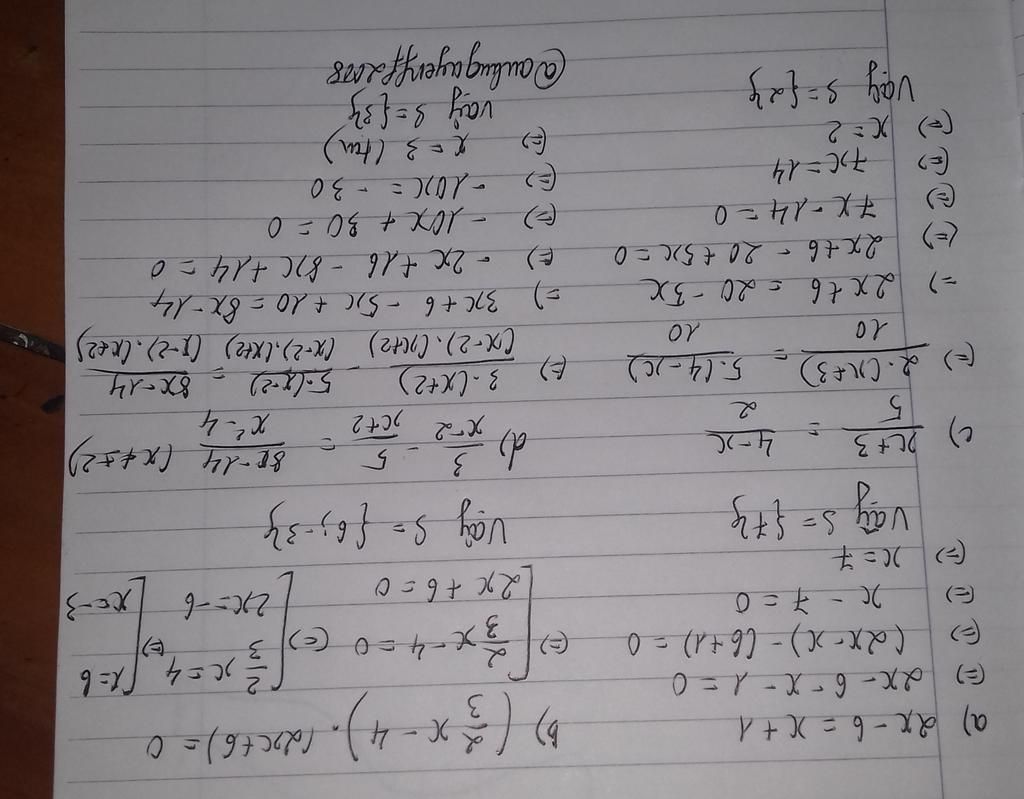 a) 2x - 6 = x + 1
(=) 2x - 6 - x - 1 = 0
(=) (2x - x) - (6 + 1) = 0
(=) x - 7 = 0
(=) x = 7
Vậy S = {7}
b) (2/3 x - 4) . (2x + 6) = 0
(=) [2/3 x - 4 = 0 (=) [2/3 x = 4 (=) [x = 6
2x + 6 = 0 2x = -6 x = -3
Vậy S = {6; -3}
c) (x + 3)/5 = (4 - x)/2
(=) 2.(x + 3)/10 = 5.(4 - x)/10
=) 2x + 6 = 20 - 5x
(=) 2x + 6 - 20 + 5x = 0
(=) 7x - 14 = 0
(=) 7x = 14
(=) x = 2
Vậy S = {2}
d) 3/(x - 2) - 5/(x + 2) = (8x - 14)/(x² - 4) (x ≠ ±2)
(=) 3.(x + 2)/(x - 2).(x + 2) - 5.(x - 2)/(x - 2).(x + 2) = (8x - 14)/(x - 2).(x + 2)
=) 3x + 6 - 5x + 10 = 8x - 14
(=) -2x + 16 - 8x + 14 = 0
(=) -10x + 30 = 0
(=) -10x = -30
(=) x = 3 (tm)
Vậy S = {3}